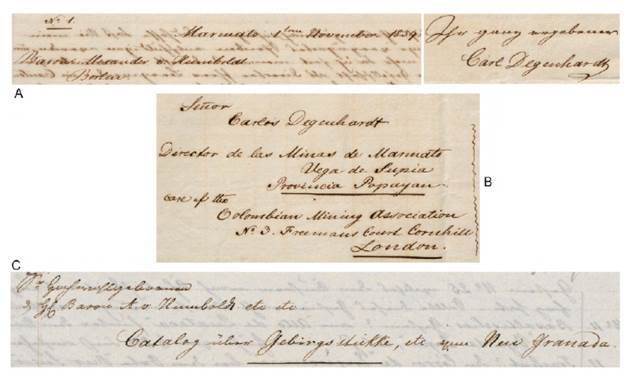 No 1.
Marmato 1ten November 1839.
Baron Alexander v Humboldt
Berlin
Ihr ganz ergebener
Carl Degenhardt
A
Señor
Carlos Degenhardt
Director de las Minas de Marmato
Vega de Supia
Provincia Popayan.
B
care of the
Colombian Mining Association
No 3. Freemans Court Cornhill
London.
C
Hochwohlgeboren
Baron A. v. Humboldt etc etc.
Catalog über Gebirgsstükke, etc von Neu Granada.